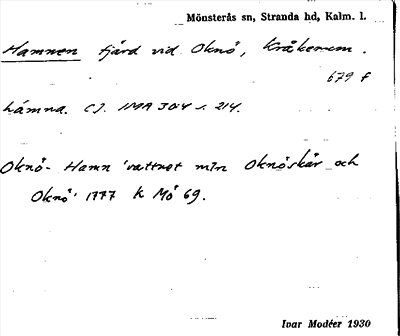 Mönsterås sn, Stranda hd, Kalm. l.
Hamnen fjärd vid Oknö, Kråkerum.
679 f
hámna. Cf. IMA 304 s. 214.
Oknö- Hamn 'vattnet mln Oknöskär och
Oknö' 1777 K Mö 69.
Ivar Modéer 1930